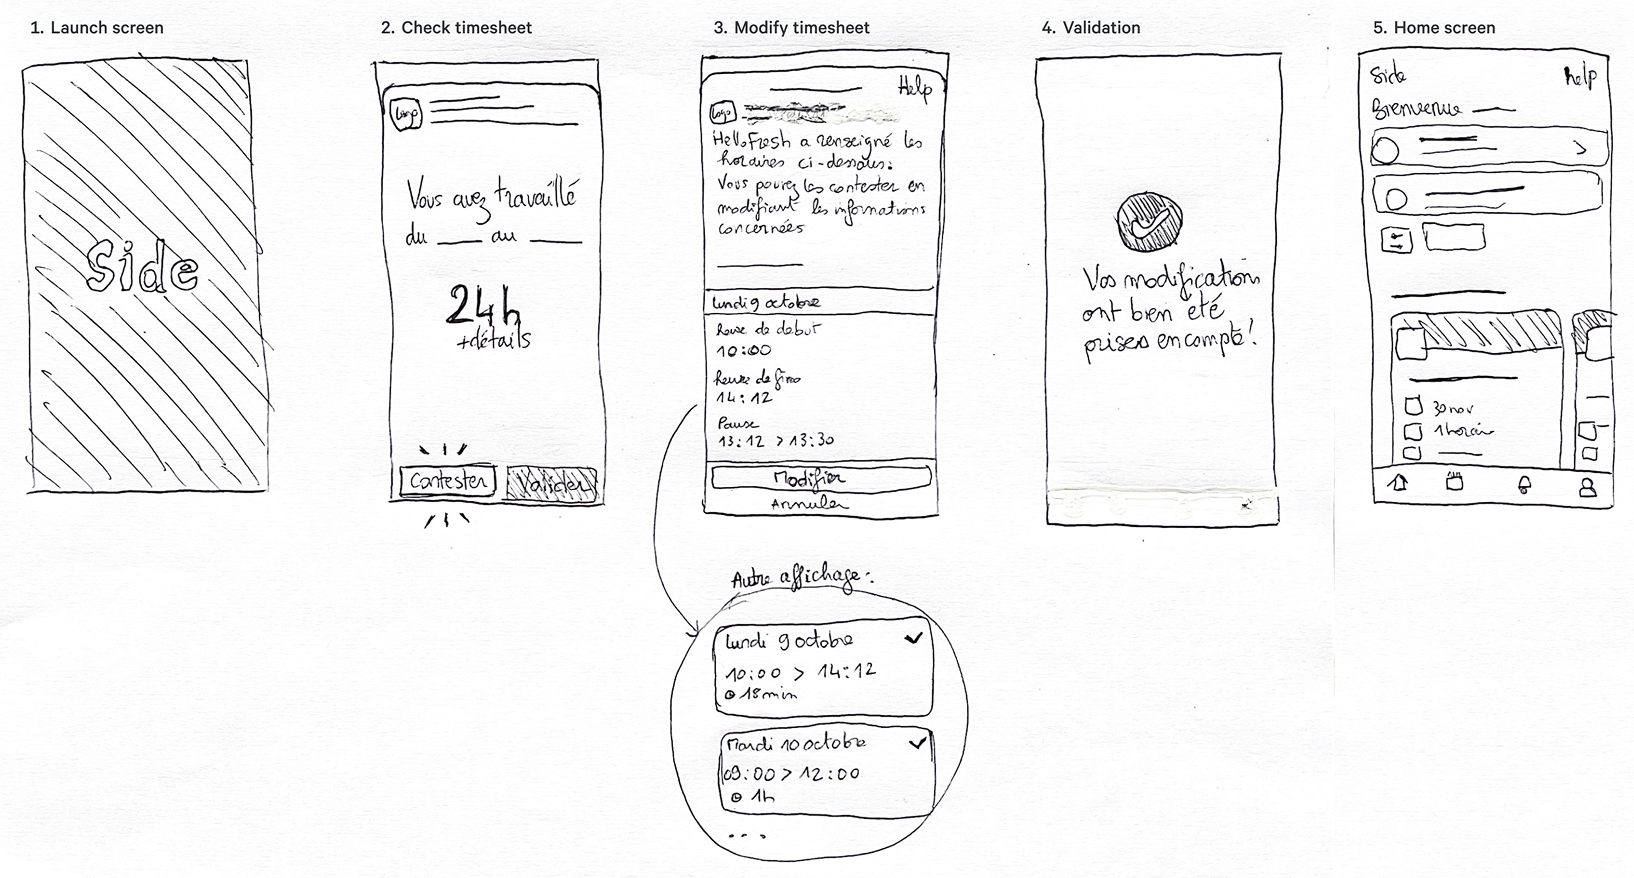 1. Launch screen
Side
2. Check timesheet
Logo
Vous avez travaillé
du ____ au ____
24h
+détails
Contester
Valider
3. Modify timesheet
Help
Logo
HelloFresh a renseigné les
horaires ci-dessous:
Vous pouvez les contester en
modifiant les informations
concernées
Lundi 9 octobre
Heure de debut
10:00
Heure de fin
14:12
Pause
13:12 > 13:30
Modifier
Annuler
Autre affichage:
Lundi 9 octobre
10:00 > 14:12
18min
Mardi 10 octobre
09:00 > 12:00
1h
...
4. Validation
Vos modifications
ont bien été
prises en compte!
5. Home screen
Side
help
Bienvenue
30 nov
1 horaire